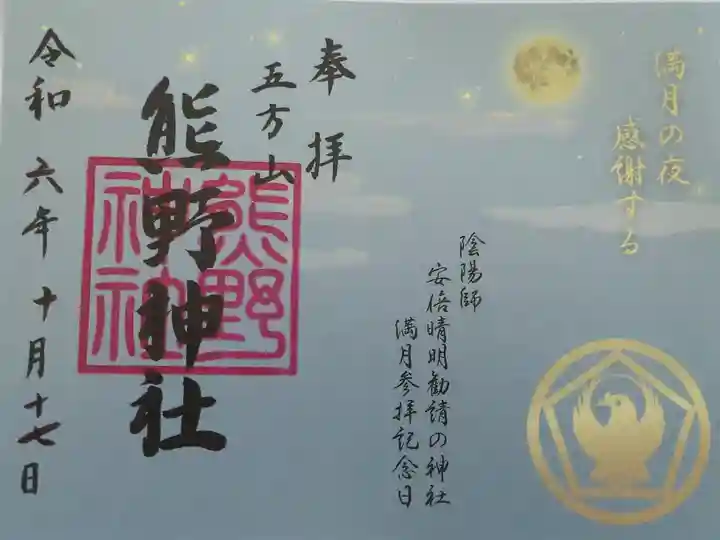 満月の夜
感謝する
陰陽師
安倍晴明勧請の神社
満月参拝記念日
奉拝
五方山
熊野神社
熊野
神社
令和六年十月十七日